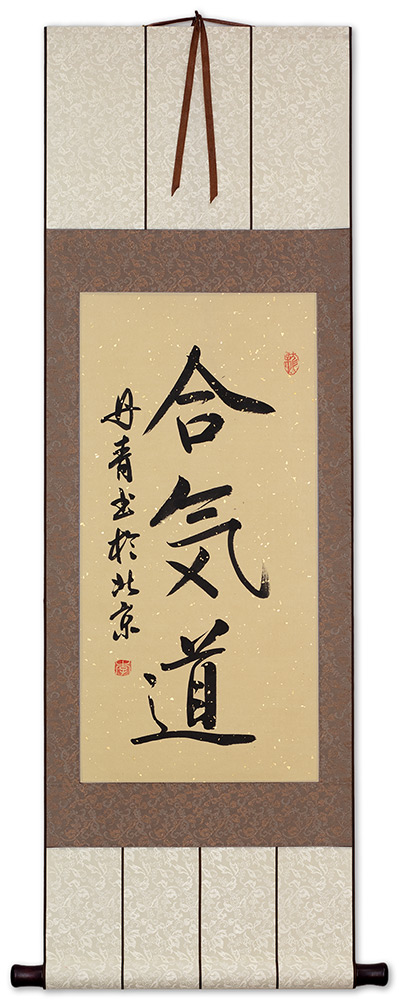 合気道
丹青书於北京